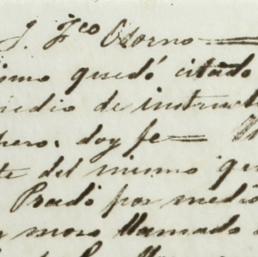 J. Fco Osorno
ismo quedó citado
medio de instruct
hero, doy fe
te del mismo qu
Prado por medio
moso llamado